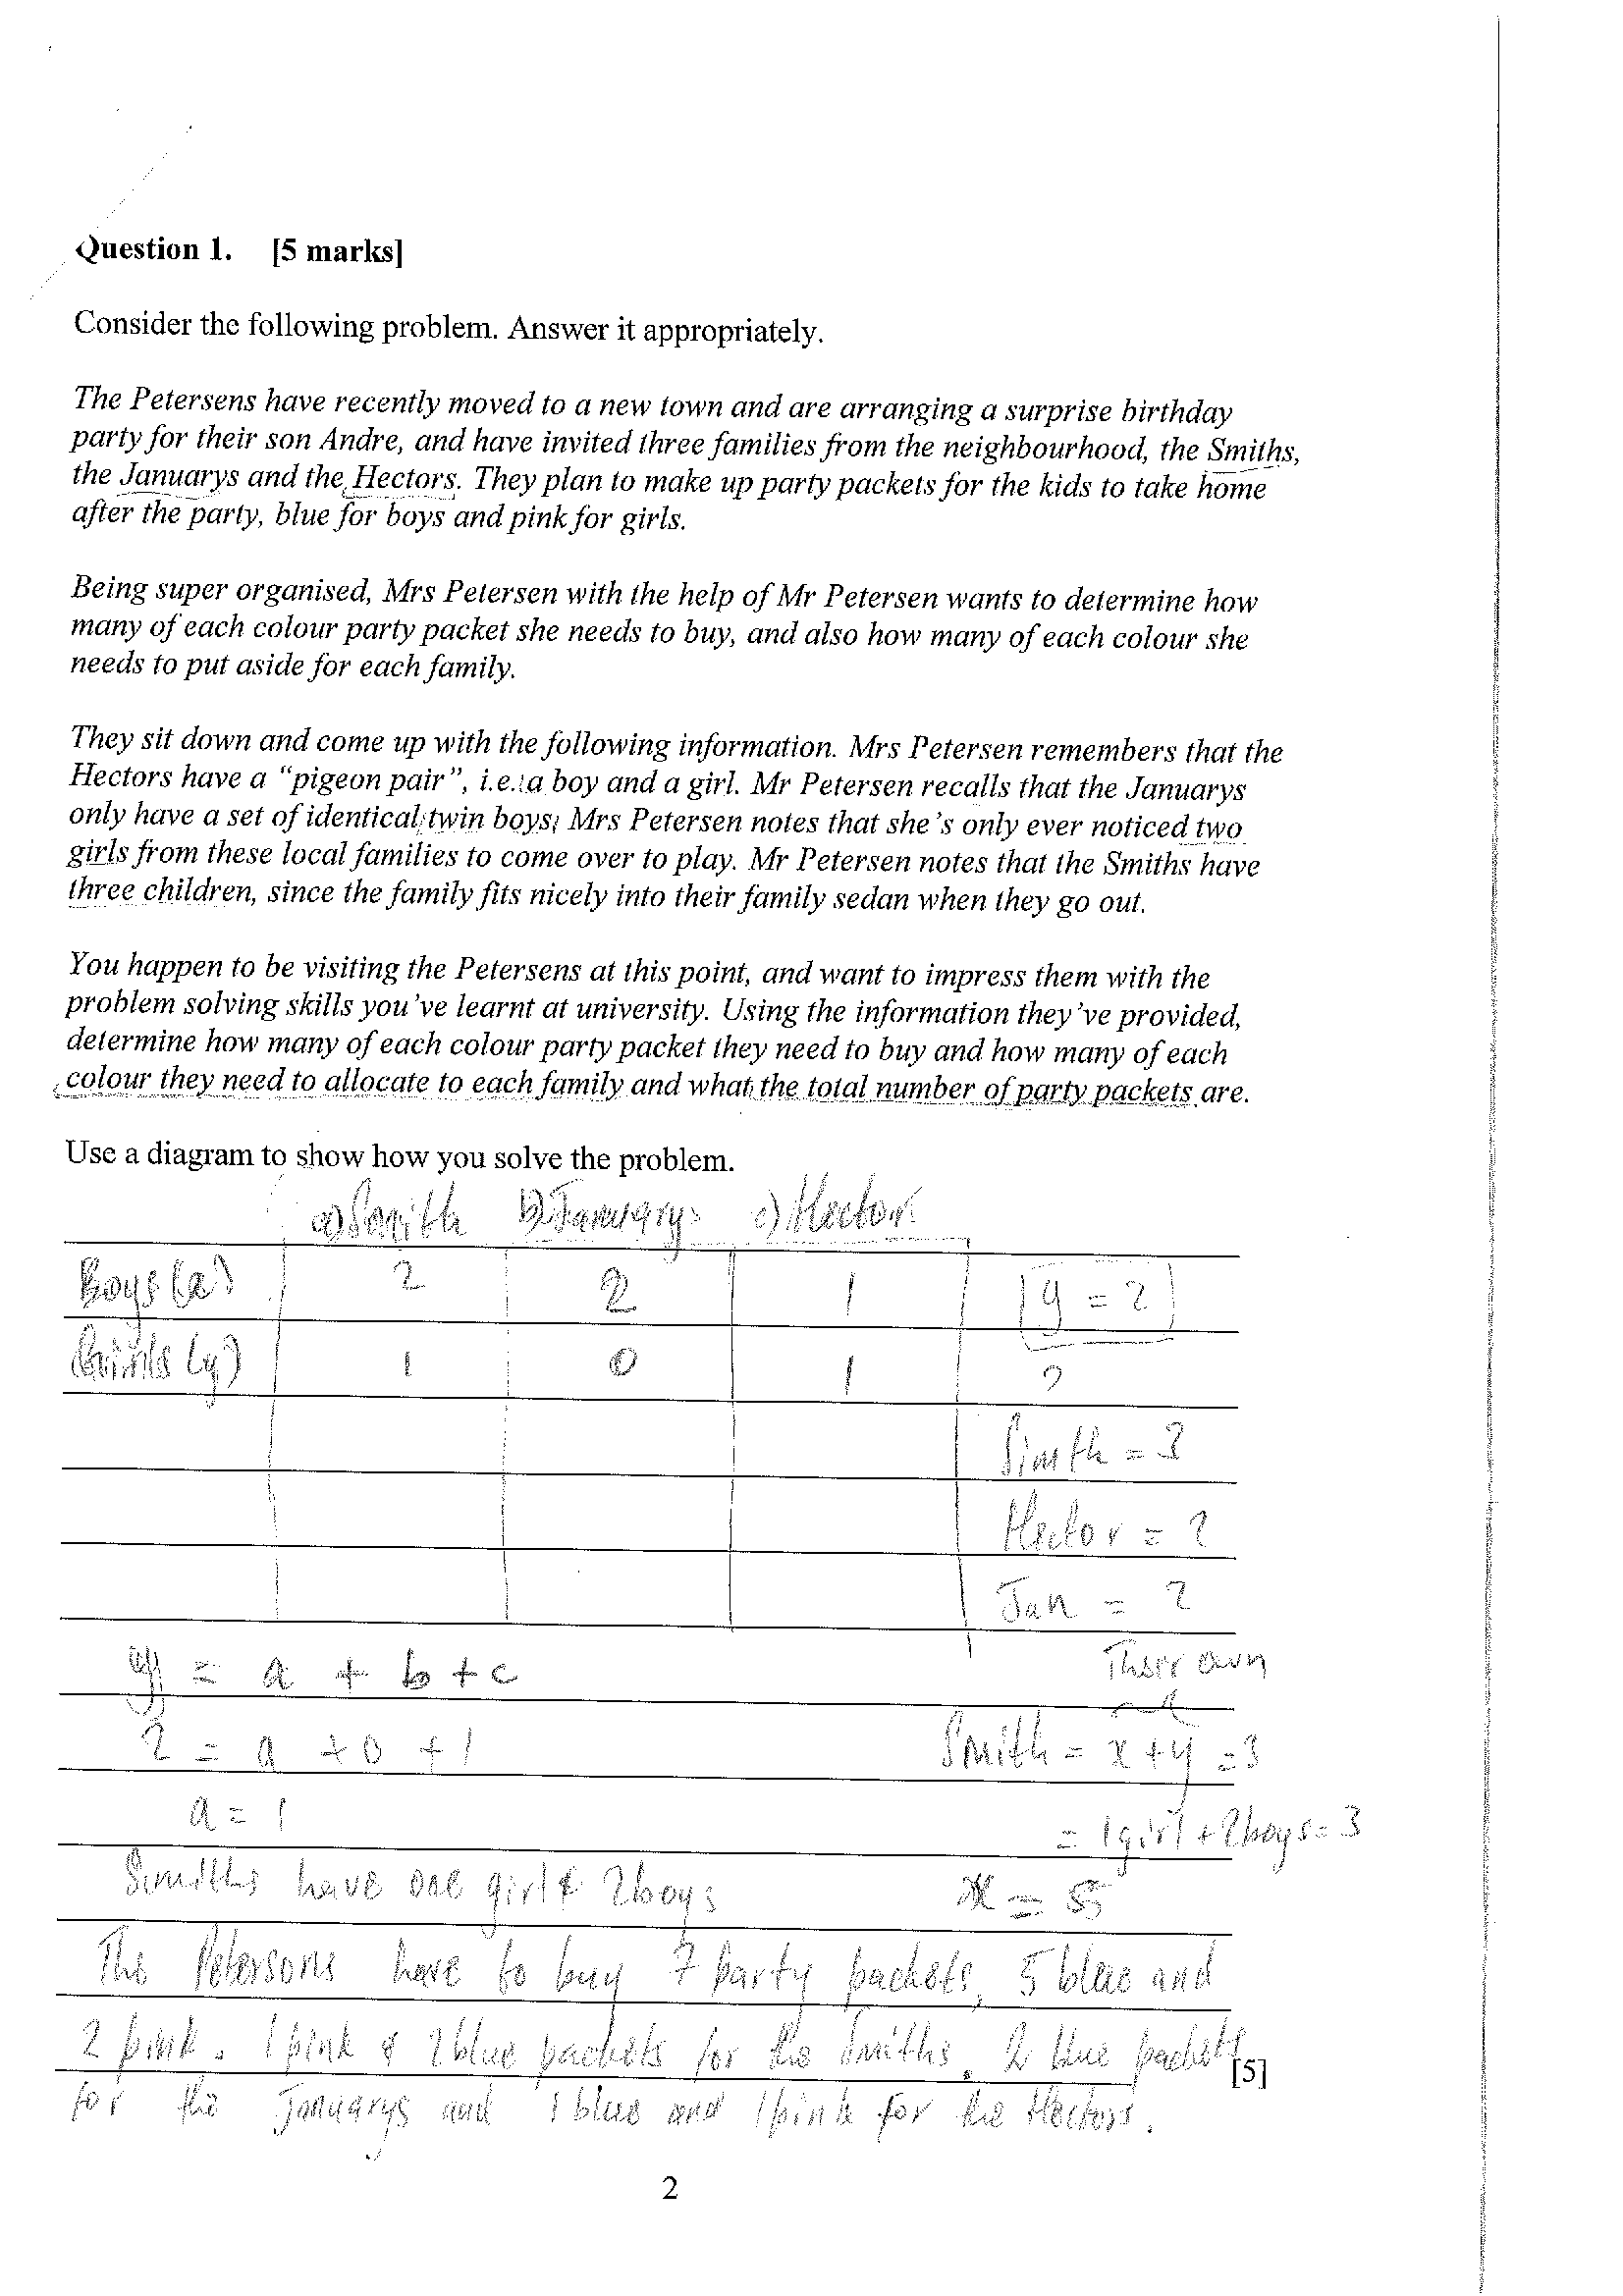 Question 1. [5 marks]
Consider the following problem. Answer it appropriately.
The Petersens have recently moved to a new town and are arranging a surprise birthday
party for their son Andre, and have invited three families from the neighbourhood, the Smiths,
the Januarys and the Hectors. They plan to make up party packets for the kids to take home
after the party, blue for boys and pink for girls.
Being super organised, Mrs Petersen with the help of Mr Petersen wants to determine how
many of each colour party packet she needs to buy, and also how many of each colour she
needs to put aside for each family.
They sit down and come up with the following information. Mrs Petersen remembers that the
Hectors have a “pigeon pair”, i.e. a boy and a girl. Mr Petersen recalls that the Januarys
only have a set of identical twin boys; Mrs Petersen notes that she's only ever noticed two
girls from these local families to come over to play. Mr Petersen notes that the Smiths have
three children, since the family fits nicely into their family sedan when they go out.
You happen to be visiting the Petersens at this point, and want to impress them with the
problem solving skills you've learnt at university. Using the information they've provided,
determine how many of each colour party packet they need to buy and how many of each
colour they need to allocate to each family and what the total number of party packets are.
Use a diagram to show how you solve the problem.
a) Smith b) January c) Hector
Boys (x) 2 2 1 y = 2
Girls (y) 1 0 1 2
Smith = 3
Hector = 2
Jan = 2
y = a + b + c
2 = a + 0 + 1
Smith = x + y = 3
a = 1
= 1 girl + 2 boys = 3
Smiths have one girl & 2 boys
x = 5
The Petersons have to buy 7 party packets, 5 blue and
2 pink. 1 pink & 2 blue packets for the Smiths, 2 blue packets
[5]
for the Januarys and 1 blue and 1 pink for the Hectors.
2